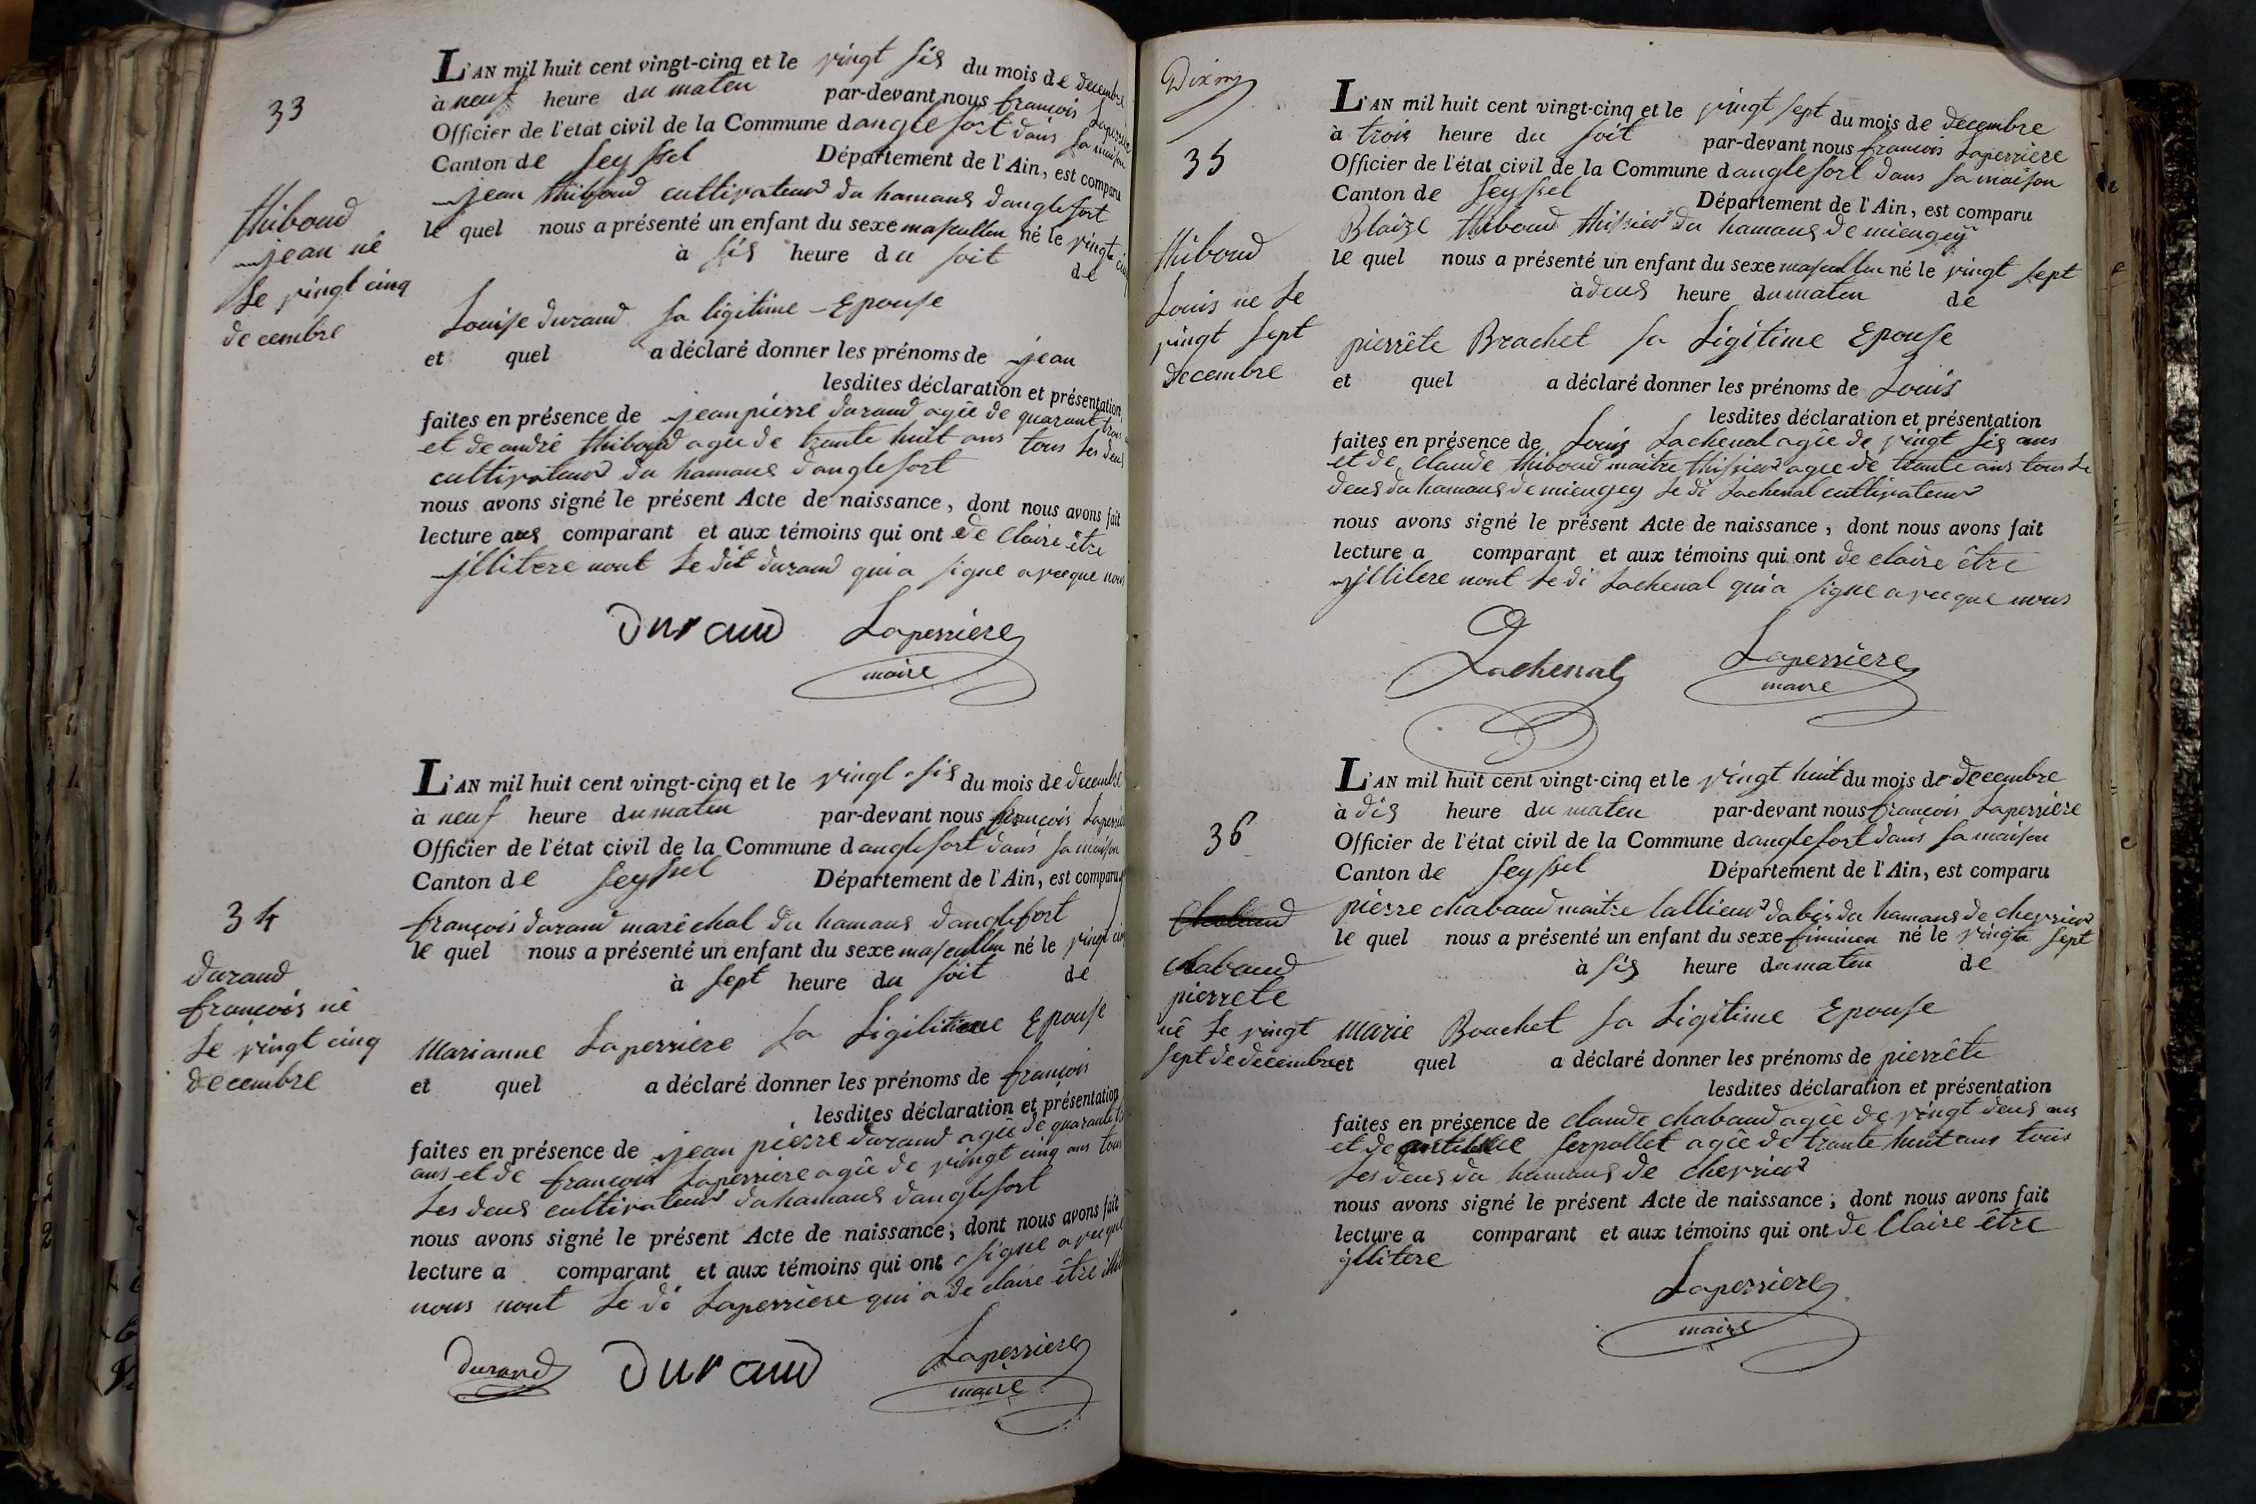 33
thiboud
jean nê
le vingt cinq
decembre
L'AN mil huit cent vingt-cinq et le vingt sis du mois de decembre
à neuf heure du maten par-devant nous francois Laperrière
Officier de l'état civil de la Commune danglefort dans sa maison
Canton de Seyssel Département de l'Ain, est comparu
jean thiboud cultivateur du hamaus danglefort
le quel nous a présenté un enfant du sexe masculin né le vingt cinq
à sis heure du soit de
Louise durand sa ligitime Epouse
et quel a déclaré donner les prénoms de jean
lesdites déclaration et présentation
faites en présence de jean pierre durand agêe de quarant trois
et de andrê thiboud agêe de trente huit ans tous les deus
cultivateur du hamaus danglefort
nous avons signé le présent Acte de naissance, dont nous avons fait
lecture aus comparant et aux témoins qui ont de claire être
jllitere nont le dit durand qui a signe avecque nous
Durand Laperriere
maire
34
durand
francois nê
le vingt cinq
decembre
L'AN mil huit cent vingt-cinq et le vingt sis du mois de decembre
à neuf heure du maten par-devant nous francois Laperrière
Officier de l'état civil de la Commune danglefort dans sa maison
Canton de Seyssel Département de l'Ain, est comparu
francois durand marêchal du hamaus danglefort
le quel nous a présenté un enfant du sexe masculin né le vingt cinq
à sept heure du soit de
Marianne Laperriere sa Ligilitime Epouse
et quel a déclaré donner les prénoms de francois
lesdites déclaration et présentation
faites en présence de jean pierre durand agêe de quarante
ans et de francois Laperriere agêe de vingt cinq ans tous
Les deus cultivateur du hamaus danglefort
nous avons signé le présent Acte de naissance; dont nous avons fait
lecture a comparant et aux témoins qui ont signe avecque
nous nont le di Laperriere qui a de claire être
Durand Durand Laperriere
maire
35
thiboud
Louis ne le
vingt sept
decembre
L'AN mil huit cent vingt-cinq et le vingt sept du mois de decembre
à trois heure du soit par-devant nous francois Laperrière
Officier de l'état civil de la Commune danglefort dans sa maison
Canton de Seyssel Département de l'Ain, est comparu
Blaize thiboud thissieur du hamaus de miengey
le quel nous a présenté un enfant du sexe masculin né le vingt sept
à deus heure du maten de
pierrête Brachet sa Ligitime Epouse
et quel a déclaré donner les prénoms de Louis
lesdites déclaration et présentation
faites en présence de Louis Lachenal agêe de vingt sis ans
et de claude thiboud maitre thissieur agêe de trante ans tous le
deus du hamaus de miengey le di Lachenal cultivateur
nous avons signé le présent Acte de naissance, dont nous avons fait
lecture a comparant et aux témoins qui ont de claire être
jllitere nont le di Lachenal qui a signe avecque nous
Lachenal Laperriere
maire
36
chabaud
pierrete
nê le vingt
sept de decembre
L'AN mil huit cent vingt-cinq et le vingt huit du mois de decembre
à dis heure du maten par-devant nous francois Laperriere
Officier de l'état civil de la Commune danglefort dans sa maison
Canton de Seyssel Département de l'Ain, est comparu
pierre chabaud maitre tallieur dabis du hamaus de chevrieur
le quel nous a présenté un enfant du sexe fiminen né le vingt sept
à sis heure du maten de
Marie Bouchet sa Ligitime Epouse
et quel a déclaré donner les prénoms de pierrête
lesdites déclaration et présentation
faites en présence de claude chabaud agêe de vingt deus ans
et de serpollet agêe de trante huit ans tous
les deus du hamaus de chevrieur
nous avons signé le présent Acte de naissance; dont nous avons fait
lecture a comparant et aux témoins qui ont de Claire être
jllitere
Laperriere
maire